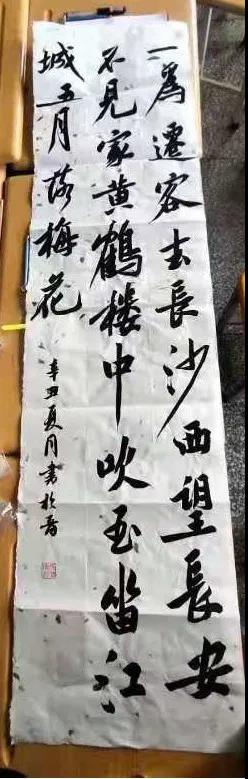 一爲遷客去長沙西望長安
不見家黄鶴樓中吹玉笛江
城五月落梅花
辛丑夏月書於